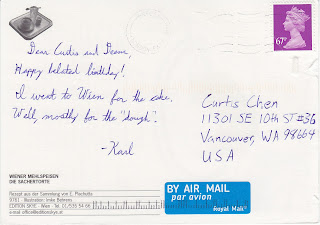 Dear Curtis and Deeann,
Happy belated birthday!
I went to Wien for the cake.
Well, mostly for the "dough".
-Karl
67P
Curtis Chen
11301 SE 10th ST #36
Vancouver, WA 98664
USA
WIENER MEHLSPEISEN
DIE SACHERTORTE
Rezept aus der Sammlung von E. Plachutta
9761 - Illustration: Imke Behrens
EDITION SKYE - Wien - Tel. 01/535 54 66
e-mail office@editionskye.at
BY AIR MAIL
par avion
Royal Mail